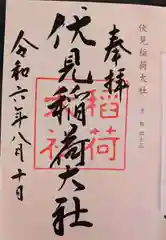 伏見稲荷大社
奉拝
伏見稲荷大社
令和六年八月十日